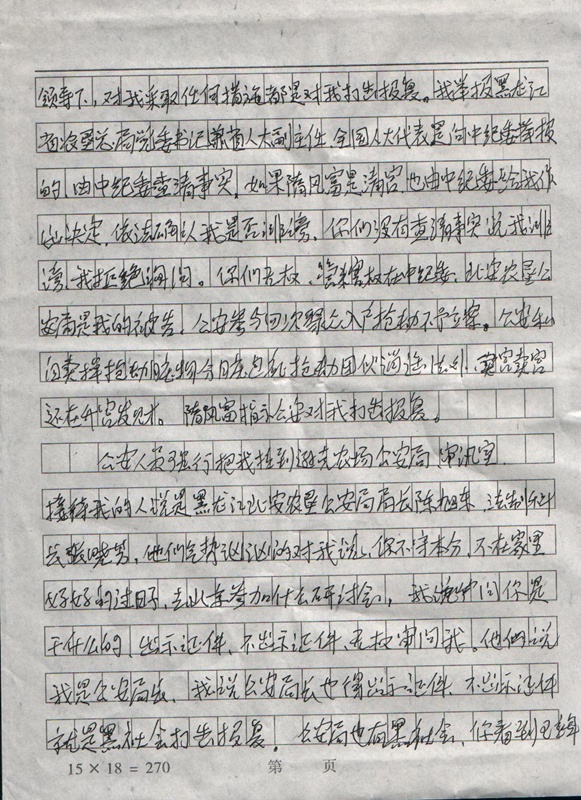 领导下，对我采取任何措施都是对我打击报复。我举报黑龙江
省农垦总局党委书记兼省人大副主任、全国人大代表是向中纪委举报
的，由中纪委查清事实，如果隋凤富是清官也由中纪委给我作
出决定，依法确认我是否诽谤，你们没有查清事实说我诽
谤，我拒绝询问。你们无权，管辖权在中纪委，北安农垦公
安局是我的被告，公安参与四次聚众入户抢劫不予立案。公安
抢劫赃物分赃包庇抢劫团伙逍遥法外，买官卖官
还在升官发财。隋凤富指示公安对我打击报复。
公安人员强行把我拉到逊克农场公安局审讯室，
接待我的人说是黑龙江北安农垦公安局局长陈旭东，法制科科
长张晓男，他们气势汹汹的对我说，你不守本分，不在家里
好好的过日子，去北京参加什么研讨会，我说问你是
干什么的，出示证件，不出示证件，无权审问我。他们说
我是公安局长，我说公安局长也得出示证件，不出示证件
就是黑社会打击报复。公安局也有黑社会，你看到
15×18=270 第 页